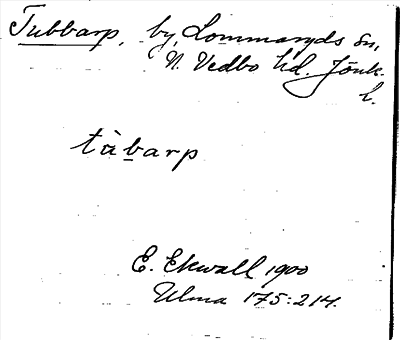 Tubbarp, by, Lommaryds sn,
N. Vedbo hd. Jönk.
L.
tàbarp
E. Ekwall 1900
Ulma 175:214.